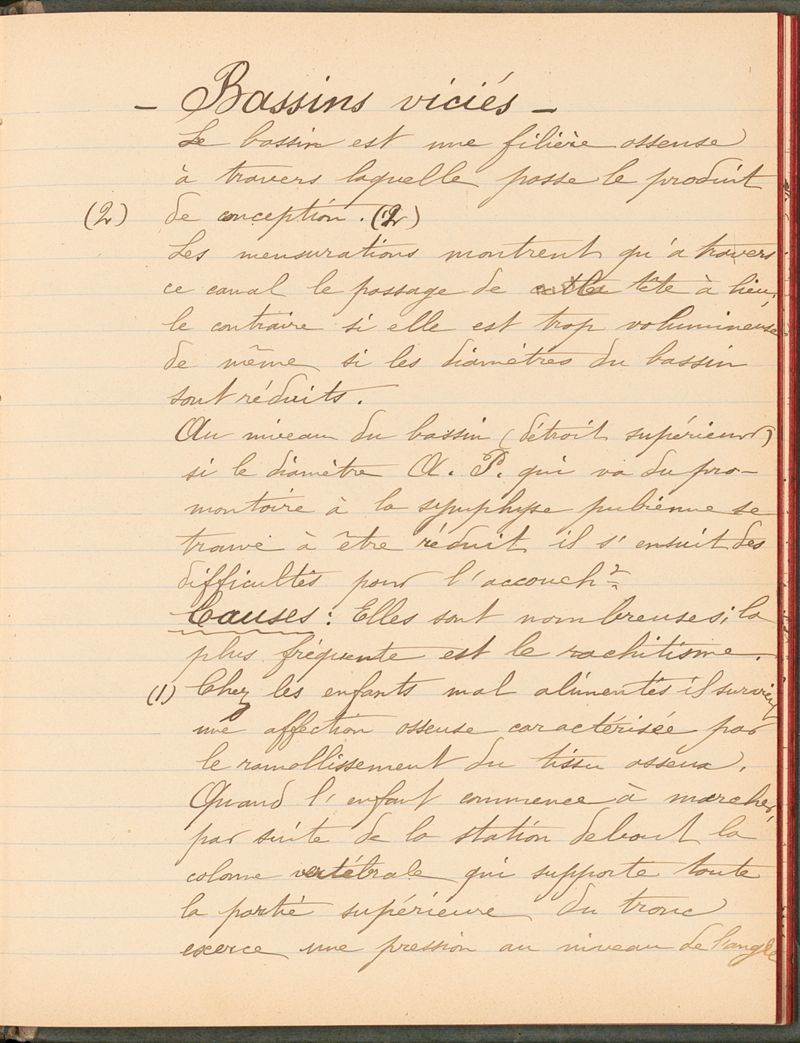 - Bassins viciés -
Le bassin est une filière osseuse
à travers laquelle passe le produit
(2) de conception. (2)
Les mensurations montrent qu'à travers
ce canal le passage de la tête à lieu,
le contraire si elle est trop volumineuse
de même si les diamètres du bassin
sont réduits.
Au niveau du bassin (détroit supérieur)
si le diamètre A. P. qui va du pro-
montoire à la symphyse pubienne se
trouve à être réduit il s'ensuit des
difficultés pour l'accouch^t.
Causes : Elles sont nombreuses ; la
plus fréquente est le rachitisme.
(1) Chez les enfants mal alimentés il survient
une affection osseuse caractérisée par
le ramollissement du tissu osseux.
Quand l'enfant commence à marcher,
par suite de la station debout la
colonne vertébrale qui supporte toute
la partie supérieure du tronc
exerce une pression au niveau de l'angle